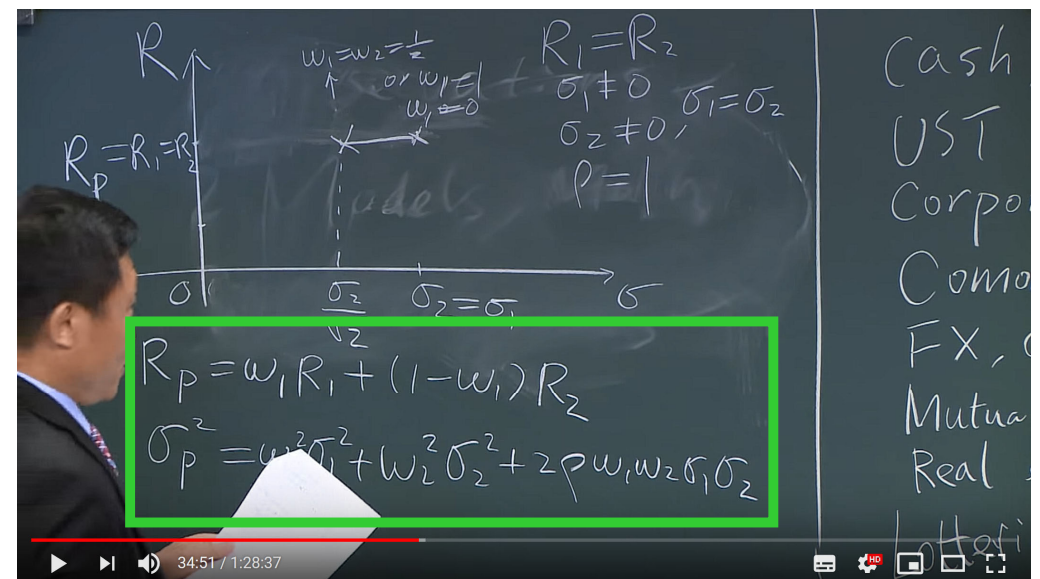 R
w₁=w₂=½
or w₁=1
w₁=0
R₁=R₂
σ₁≠0
σ₁=σ₂
σ₂≠0,
ρ=1
R_p=R₁=R₂
0
σ₂/√2
σ₂=σ₁
σ
R_p=w₁R₁+(1-w₁)R₂
σ_p²=w₁²σ₁²+w₂²σ₂²+2ρw₁w₂σ₁σ₂
Cash
UST
Corpo
Como
FX,
Mutua
Real
Lotteri
34:51 / 1:28:37
HD